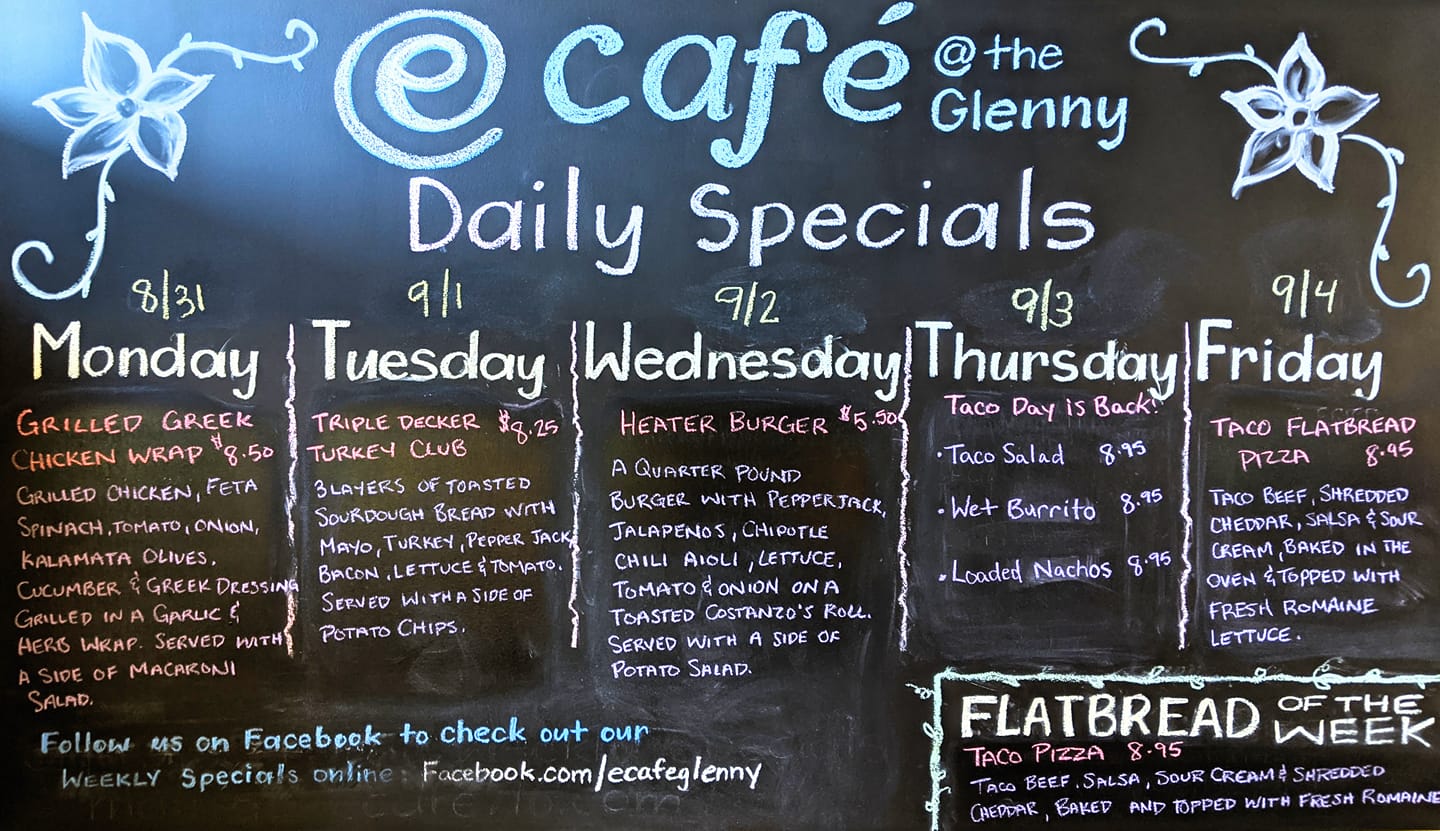 @ café @ the
Glenny
Daily Specials
8/31
Monday
GRILLED GREEK
CHICKEN WRAP $8.50
GRILLED CHICKEN, FETA
SPINACH, TOMATO, ONION,
KALAMATA OLIVES,
CUCUMBER & GREEK DRESSING
GRILLED IN A GARLIC &
HERB WRAP. SERVED WITH
A SIDE OF MACARONI
SALAD.
9/1
Tuesday
TRIPLE DECKER $8.25
TURKEY CLUB
3 LAYERS OF TOASTED
SOURDOUGH BREAD WITH
MAYO, TURKEY, PEPPER JACK,
BACON, LETTUCE & TOMATO.
SERVED WITH A SIDE OF
POTATO CHIPS.
9/2
Wednesday
HEATER BURGER $5.50
A QUARTER POUND
BURGER WITH PEPPERJACK,
JALAPENOS, CHIPOTLE
CHILI AIOLI, LETTUCE,
TOMATO & ONION ON A
TOASTED COSTANZO'S ROLL.
SERVED WITH A SIDE OF
POTATO SALAD.
9/3
Thursday
Taco Day is Back!
• Taco Salad 8.95
• Wet Burrito 8.95
• Loaded Nachos 8.95
9/4
Friday
TACO FLATBREAD
PIZZA 8.95
TACO BEEF, SHREDDED
CHEDDAR, SALSA & SOUR
CREAM, BAKED IN THE
OVEN & TOPPED WITH
FRESH ROMAINE
LETTUCE.
Follow us on Facebook to check out our
WEEKLY Specials online: Facebook.com/ecafeglenny
FLATBREAD OF THE
WEEK
TACO PIZZA 8.95
TACO BEEF, SALSA, SOUR CREAM & SHREDDED
CHEDDAR, BAKED AND TOPPED WITH FRESH ROMAINE